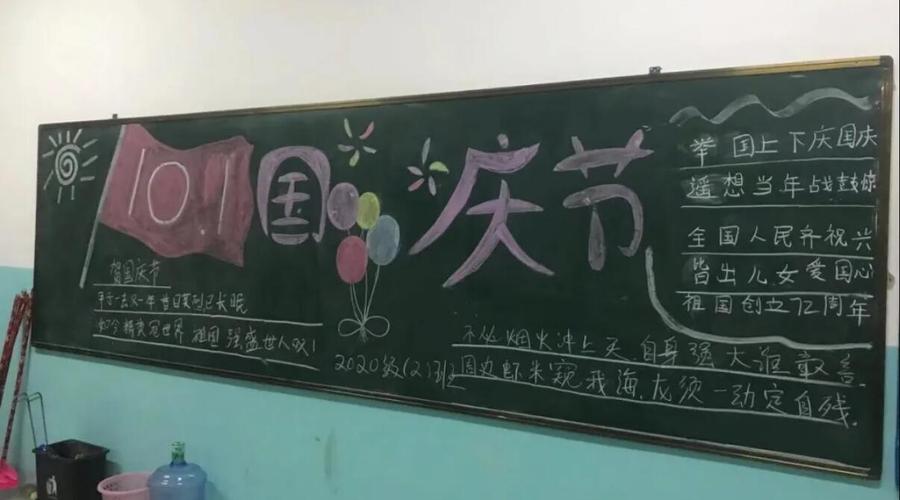 101
国庆节
举国上下庆国庆
遥想当年战鼓
全国人民齐祝兴
皆出儿女爱国心
祖国创立72周年
贺国庆节
一去又一年 昔日
如今精 世界 祖国强盛世人
不必烟火冲上天,自身强大谁敢言
2020级(2)班
周边虾米窥我海,龙须一动定自残.